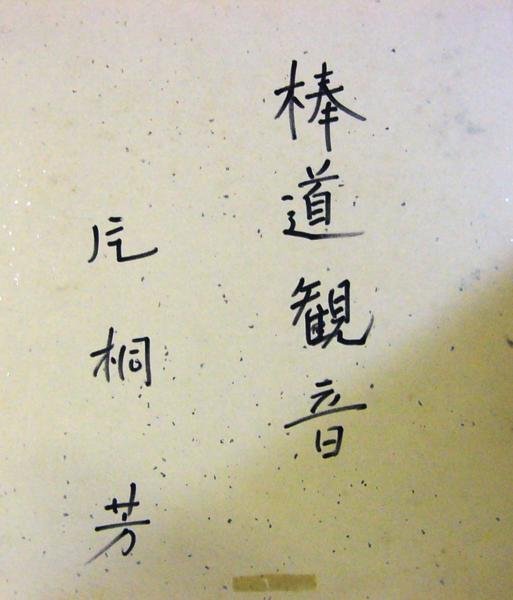 棒道観音
片桐芳